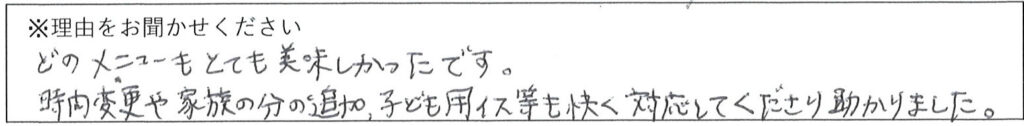 ※理由をお聞かせください
どのメニューもとても美味しかったです。
時間変更や家族の分の追加、子ども用イス等も快く対応してくださり助かりました。